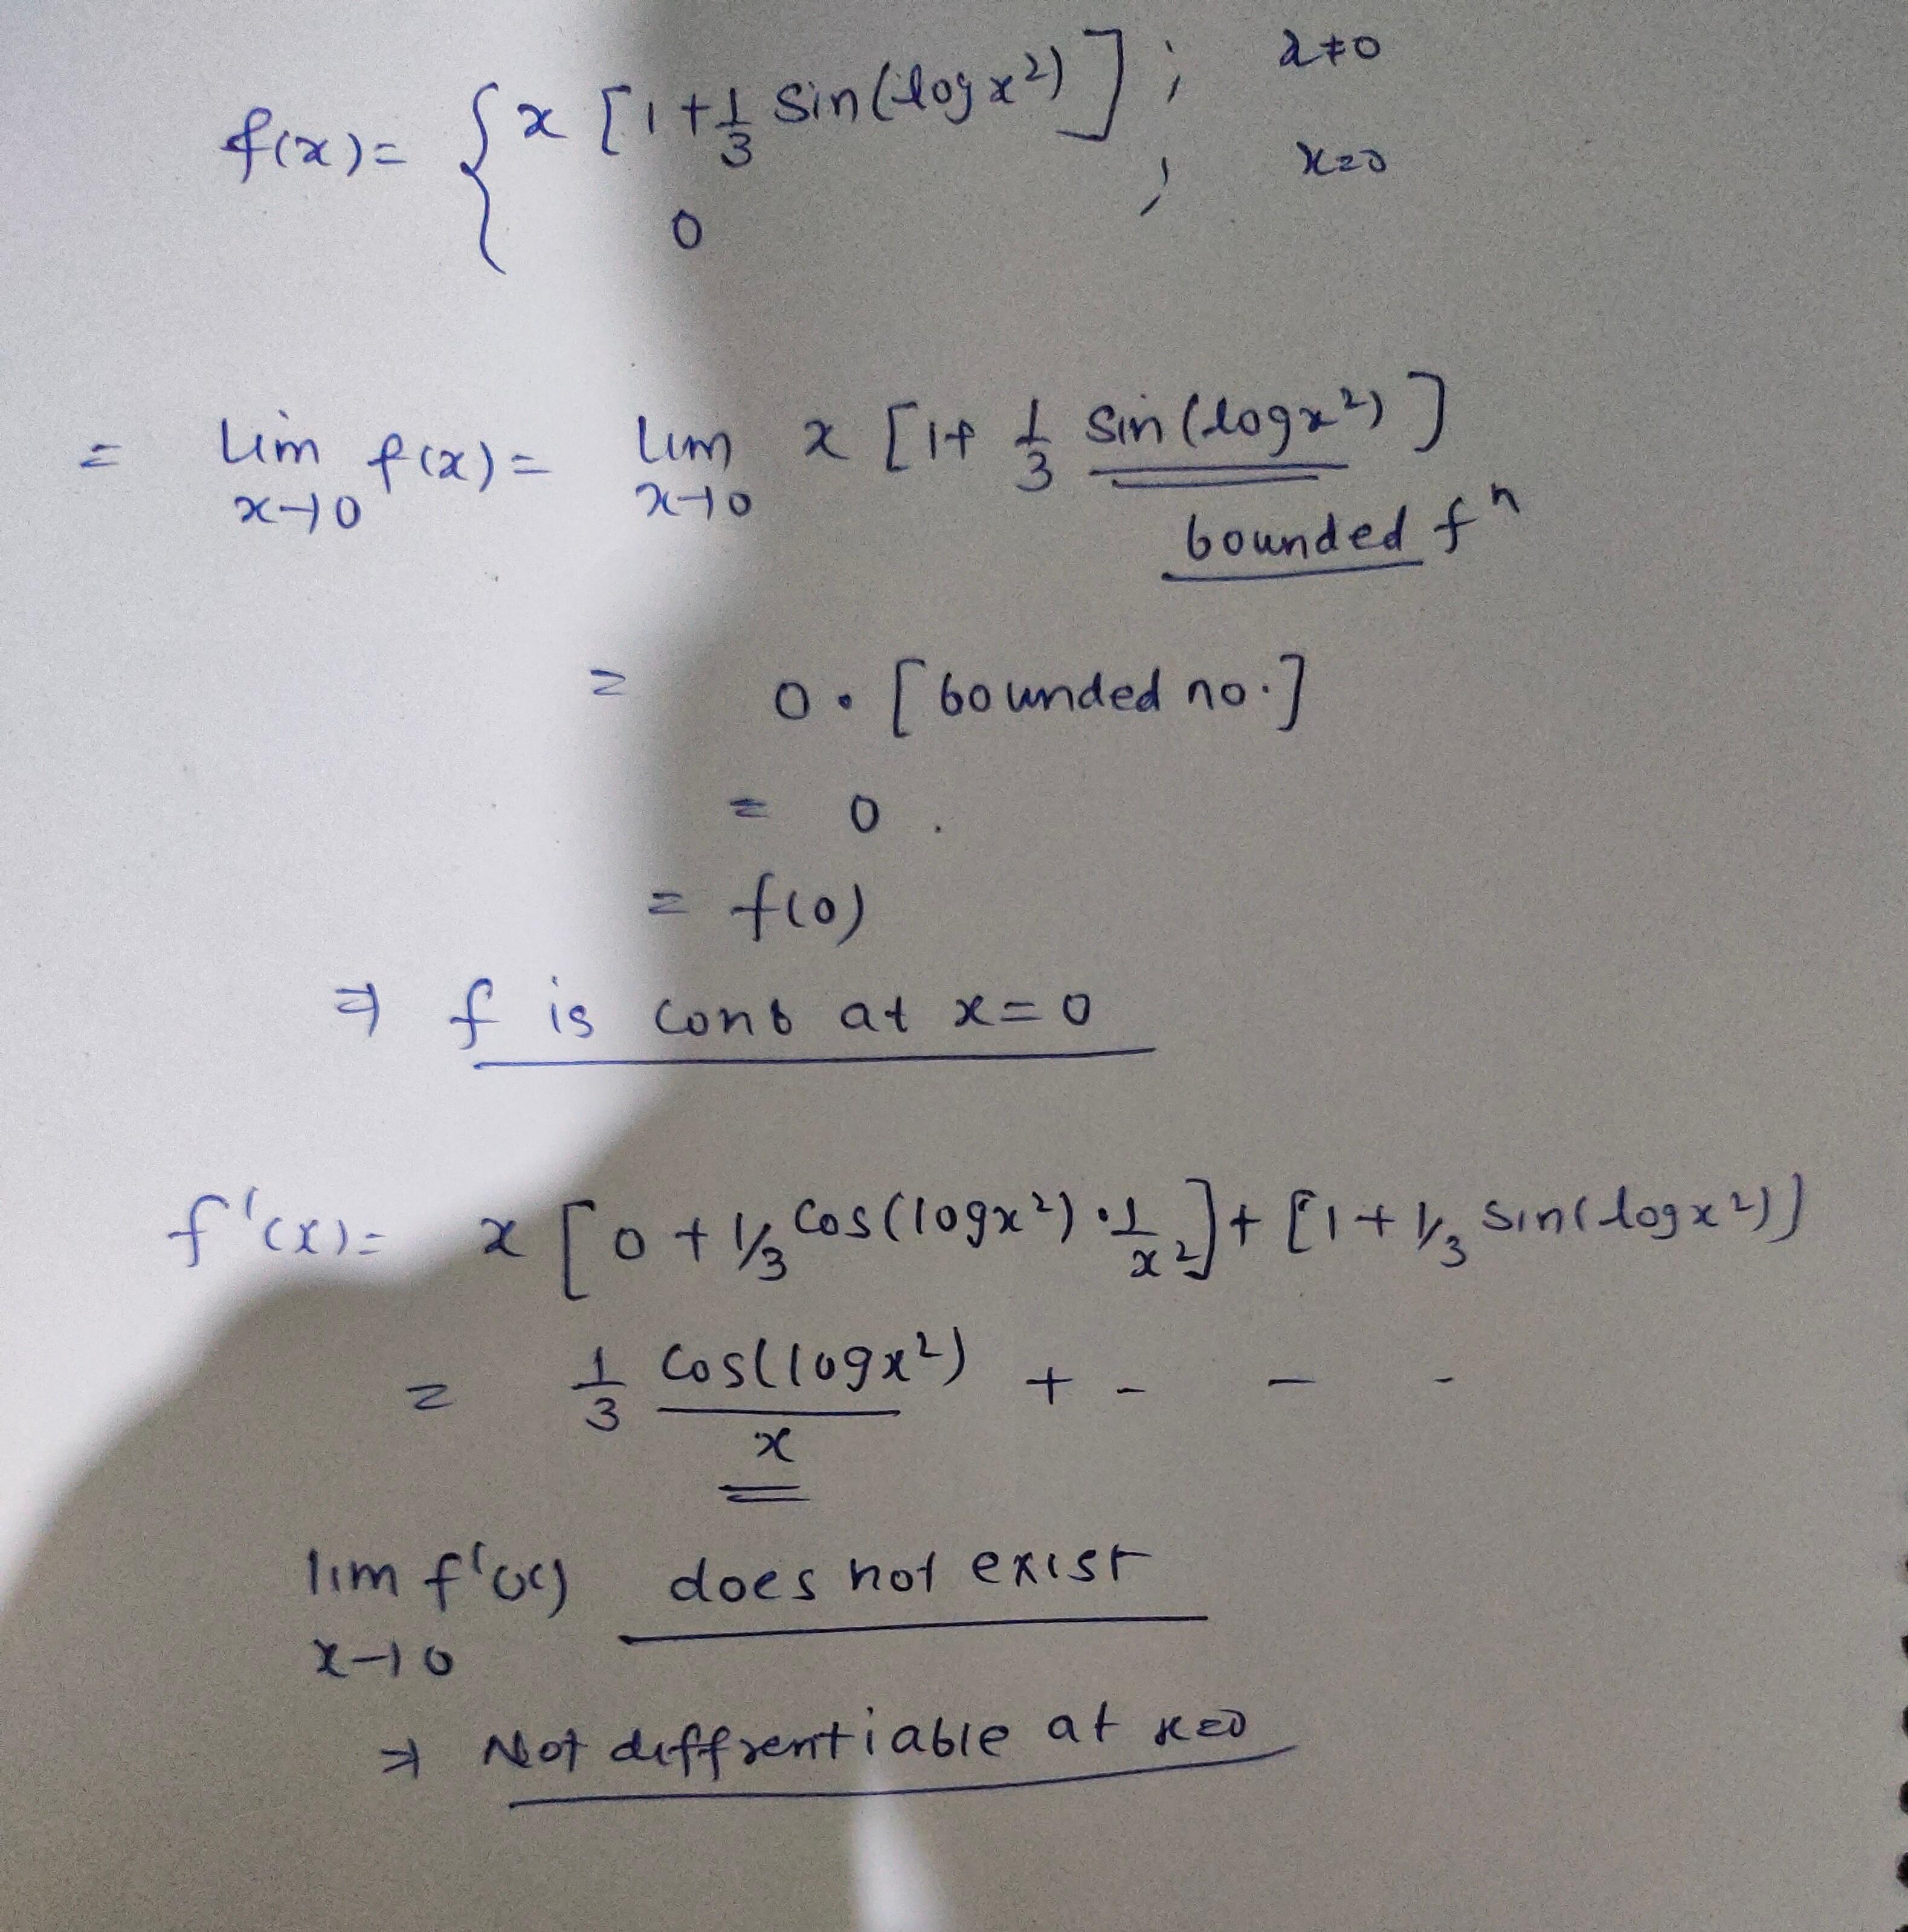 f(x) = { x [1 + 1/3 sin(log x²)] ; x ≠ 0
0 ; x = 0
= lim x→0 f(x) = lim x→0 x [1 + 1/3 sin(log x²)]
bounded fⁿ
= 0 · [bounded no.]
= 0 .
= f(0)
⇒ f is cont at x = 0
f'(x) = x [0 + 1/3 cos(log x²) · 1/x²] + [1 + 1/3 sin(log x²)]
= 1/3 cos(log x²)/x + - - -
lim x→0 f'(x) does not exist
⇒ Not diffrentiable at x=0